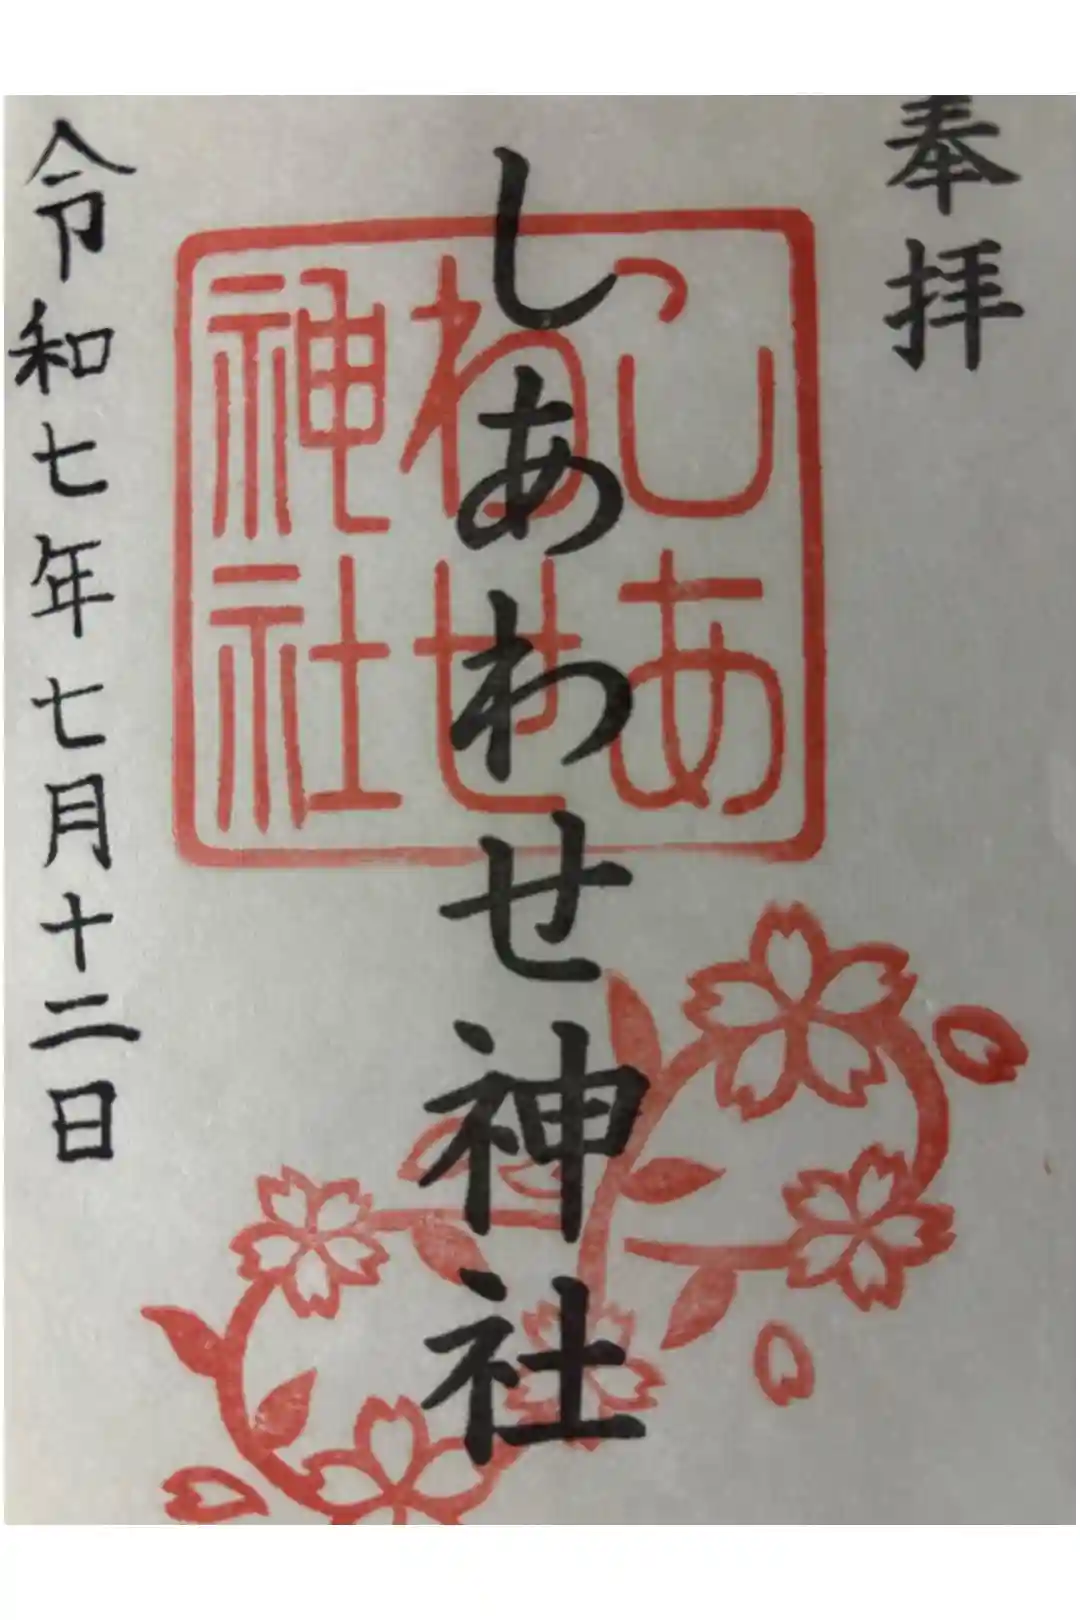 奉拝
しあわせ神社
しあ
わせ
神社
令和七年七月十二日